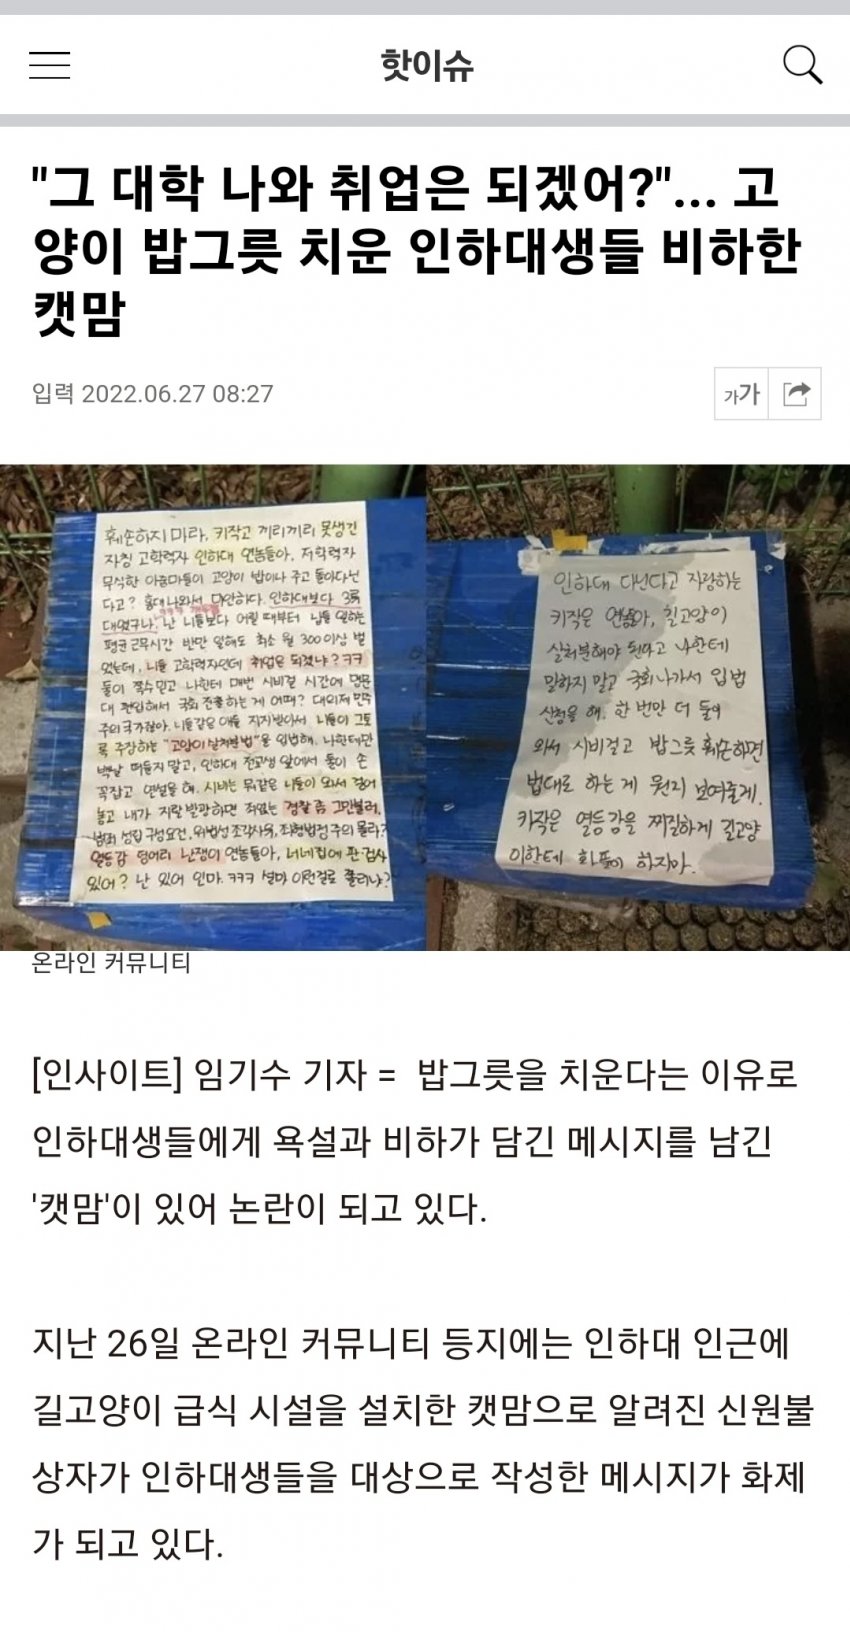 핫이슈
"그 대학 나와 취업은 되겠어?"... 고
양이 밥그릇 치운 인하대생들 비하한
캣맘
입력 2022.06.27 08:27
가가
훼손하지 미라, 키작고 끼리끼리 못생긴
자칭 고학력자 인하대 연놈들아, 저학력자
무식한 아줌마들이 고양이 밥이나 주고 돌아다닌
다고? 홍대나와서 미안하다. 인하대보다 3배
대였구나, 난 니들보다 어릴 때부터 니들 일하는
평균 근무시간 반만 일해도 최소 월 300이상 벌
었는데, 니들 고학력자인데 취업은 되겠냐? ㅋㅋ
둘이 쪽수믿고 나한테 매번 시비걸 시간에 명문
대 편입해서 국회 진출하는 게 어때? 대의제 민주
주의 국가잖아. 니들같은 애들 지지받아서 니들이 그토
록 주장하는 "고양이살처분법"을 입법해. 나한테만
백날 떠들지 말고, 인하대 전교생 앞에서 둘이 손
꼭잡고 연설을 해. 시비는 뭐같은 니들이 와서 걸어
놓고 내가 지랄발광하면 죄없는 경찰 좀 그만불러.
범죄 성립 구성요건, 위법성 조각사유, 죄형법정주의 몰라?
열등감 덩어리 난쟁이 연놈들아, 너네집에 판검사
있어? 난 있어 인마. ㅋㅋㅋ 설마 이런걸로 쫄리냐?
인하대 다닌다고 자랑하는
키작은 연놈들아, 길고양이
살처분해야 된다고 나한테
말하지 말고 국회나가서 입법
신청을 해. 한 번만 더 둘이
와서 시비걸고 밥그릇 훼손하면
법대로 하는 게 뭔지 보여줄게.
키작은 열등감을 찌질하게 길고양
이한테 화풀이 하지마.
온라인 커뮤니티
[인사이트] 임기수 기자 = 밥그릇을 치운다는 이유로
인하대생들에게 욕설과 비하가 담긴 메시지를 남긴
'캣맘'이 있어 논란이 되고 있다.
지난 26일 온라인 커뮤니티 등지에는 인하대 인근에
길고양이 급식 시설을 설치한 캣맘으로 알려진 신원불
상자가 인하대생들을 대상으로 작성한 메시지가 화제
가 되고 있다.